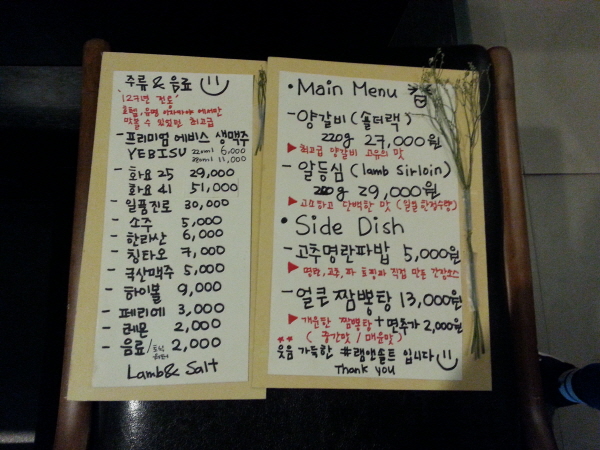 주류 & 음료
'127년 전통'
호텔, 유명 이자카야 에서만
맛볼 수 있었던 최고급
- 프리미엄 에비스 생맥주
YEBISU 220ml 6,000
11,000
- 화요 25 29,000
- 화요 41 51,000
- 일품진로 30,000
- 소주 5,000
- 한라산 6,000
- 칭타오 7,000
- 국산맥주 5,000
- 하이볼 9,000
- 페리에 3,000
- 레몬 2,000
- 음료/ 2,000
Lamb & Salt
• Main Menu
- 양갈비 (숄더랙)
220g 27,000원
▶ 최고급 양갈비 고유의 맛
- 알등심 (lamb Sirloin)
g 29,000원
▶ 고소하고 담백한 맛 (일일 한정수량)
• Side Dish
- 고추명란파밥 5,000원
▶ 명란, 고추, 파 토핑과 직접 만든 간장소스
- 얼큰 짬뽕탕 13,000원
▶ 개운한 짬뽕탕 + 면추가 2,000원
( 중간맛 / 매운맛 )
웃음 가득한 #램앤솔트 입니다
Thank you